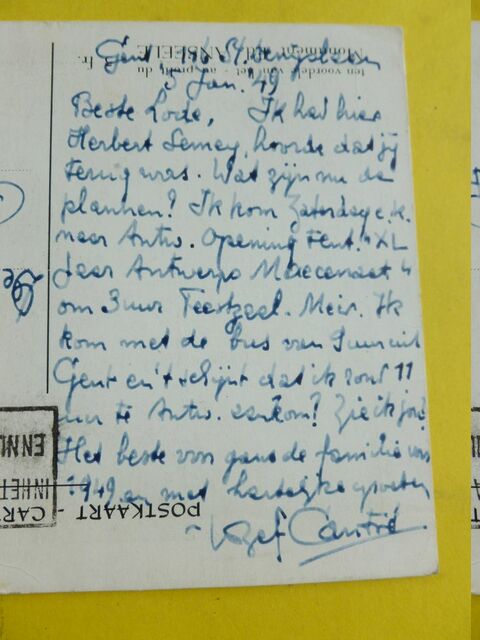 Gent 196 St
5 Jan. 49
Beste Lode, Ik had hier
Herbert hoorde dat jij
terug was. Wat zijn nu de
plannen? Ik kom Zaterdag e.k.
naar Antw. Opening tent. "XL
Jaar Antwerps Maecenaat"
om 3 uur Feestzaal. Meir. Ik
kom met de bus van
Gent en 't schijnt dat ik rond 11
uur te Antw. aankom? Zie ik jou?
Het beste van gans de familie voor
1949 en met hartelijke groeten
Jozef Cantré
ten voordele van het - au profit du
Monument ANSEELE fr.
POSTKAART - CART
INHET
ENNU
De